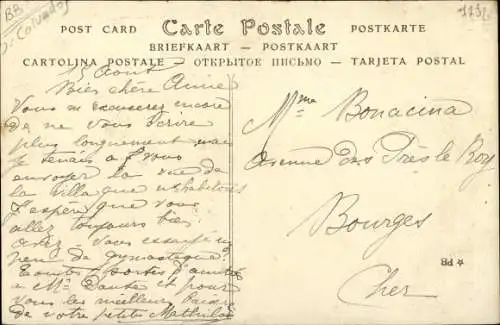 BB
Calvados
POST CARD Carte Postale POSTKARTE
BRIEFKAART — POSTKAART
CARTOLINA POSTALE — ОТКРЫТОЕ ПИСЬМО — TARJETA POSTAL
15 Aout
Bien chère Amie
Vous m'excuserez encore
de ne vous écrire
plus longuement mais
je tenais à vous
envoyer la vue de
la villa que n/habitons
J'espère que vous
allez toujours bien.
Avez vous essayé un
peu de gymnastique?
Toutes sortes d'amitiés
à Mme et pour
vous les meilleurs
de votre petite Mathilde
Mme Bonacina
Avenue des Près le Roy
Bourges
Cher
PB